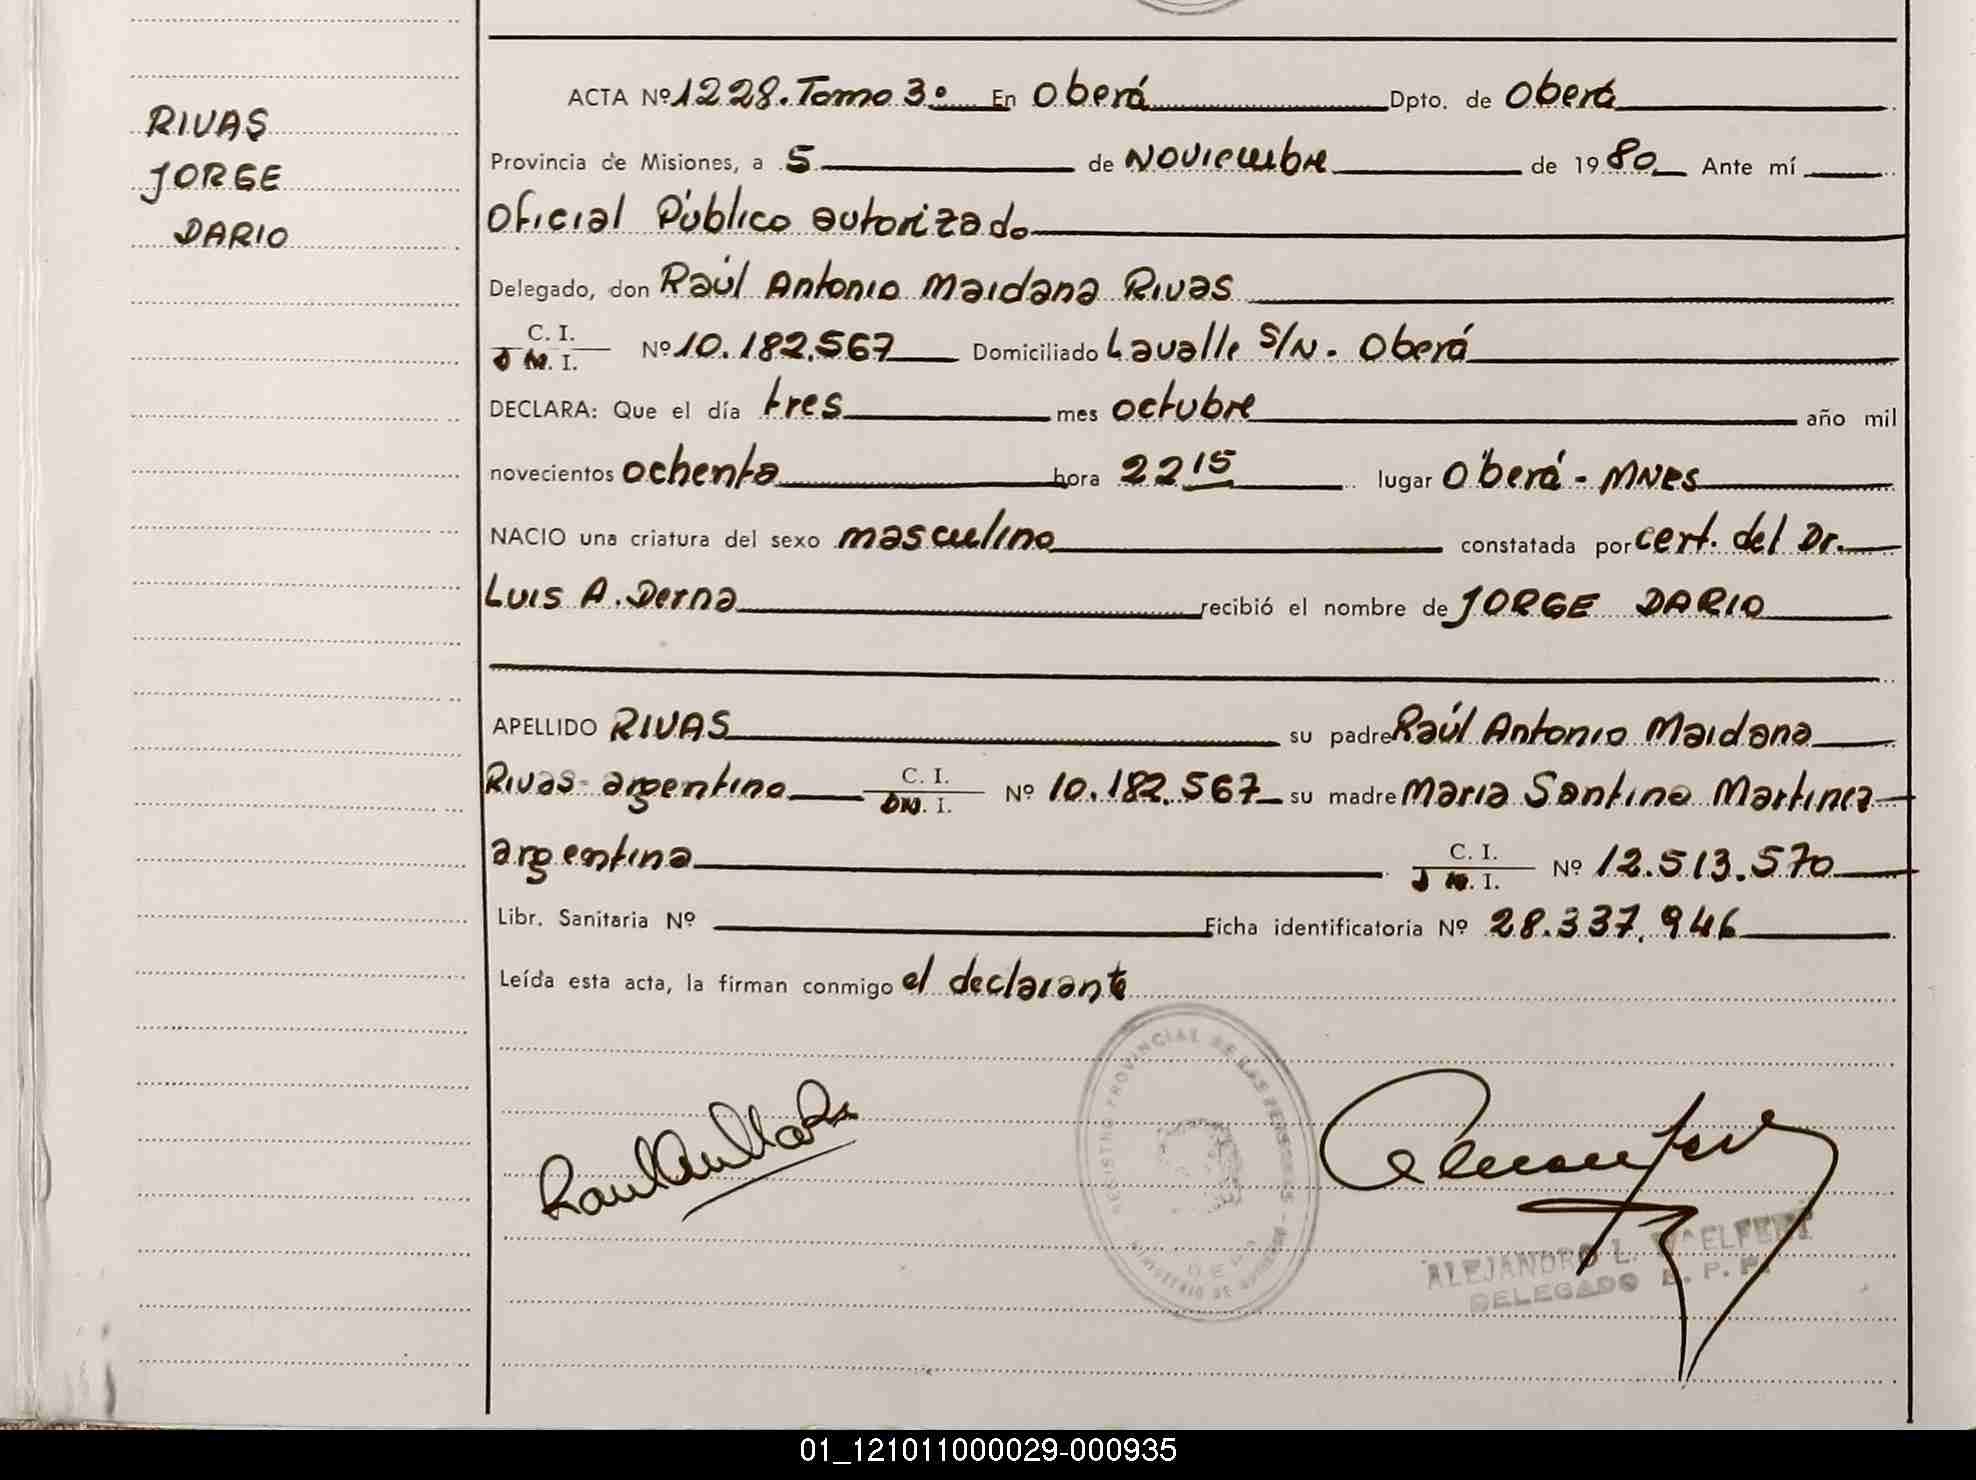 RIVAS
JORGE
DARIO
ACTA Nº 1228. Tomo 3º En Oberá Dpto. de Oberá
Provincia de Misiones, a 5 de Noviembre de 1980 Ante mí
Oficial Público autorizado
Delegado, don Raúl Antonio Maidana Rivas
C. I.
D N. I. Nº 10.182.567 Domiciliado Lavalle S/N. Oberá
DECLARA: Que el día tres mes octubre año mil
novecientos ochenta hora 22 15 lugar Oberá - MNES
NACIO una criatura del sexo masculino constatada por cert. del Dr.
Luis A. Derna recibió el nombre de JORGE DARIO
APELLIDO RIVAS su padre Raúl Antonio Maidana
Rivas - argentino C. I. DN. I. Nº 10.182.567 su madre Maria Santina Martinez
argentina C. I. D N. I. Nº 12.513.570
Libr. Sanitaria Nº Ficha identificatoria Nº 28.337.946
Leída esta acta, la firman conmigo el declarante
REGISTRO PROVINCIAL DE LAS PERSONAS
MINISTERIO DE GOBIERNO
ALEJANDRO L.
DELEGADO R. P. P.
01_121011000029-000935